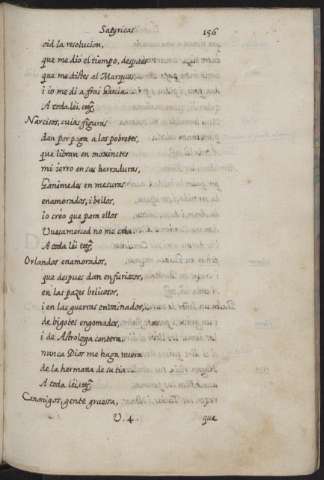 Satyricas. 156
oid la resolucion,
que me dio el tiempo, despues
que me distes al Marques,
i io me di a fras Garcia.
A toda lei etc.
Narcisos, cuias figuras
dan por paga a los pobretes,
que libran en moxinetes
mi ierro en sus herraduras,
Ganimedes en mesuras
enamorados, i bellos,
io creo que para ellos
Vuesamerced no me cria.
A toda lei etc.
Orlandos enamorados,
que despues dan en furiosos,
en las pazes belicosos,
i en las guerras envainados,
de bigotes engomados,
i de Astrologa cantera
nunca Dios me haga nuera
de la hermana de su tia
A toda lei etc.
Canonigos, gente gruessa,
V. 4. que